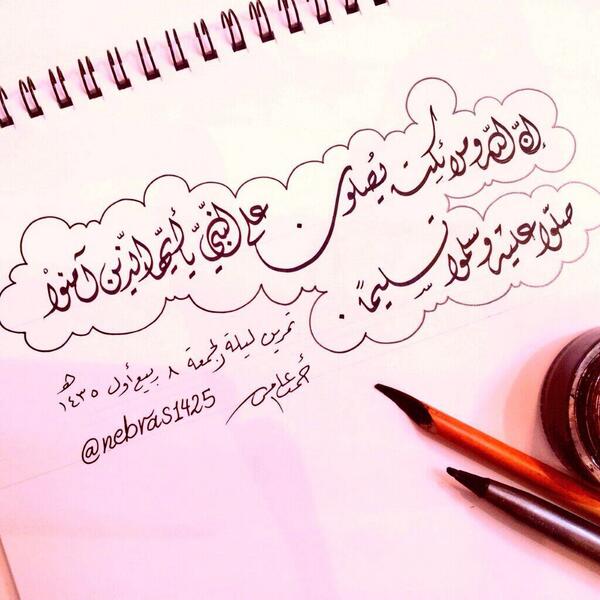 إنّ الله وملائكته يُصلون على النّبيّ يا أيّها الذّين آمنوا
صلّوا عليه وسلّموا تسليمًا.
تمرين ليلة الجمعة ٨ ربيع أول ١٤٣٥ هـ
@nebras1425